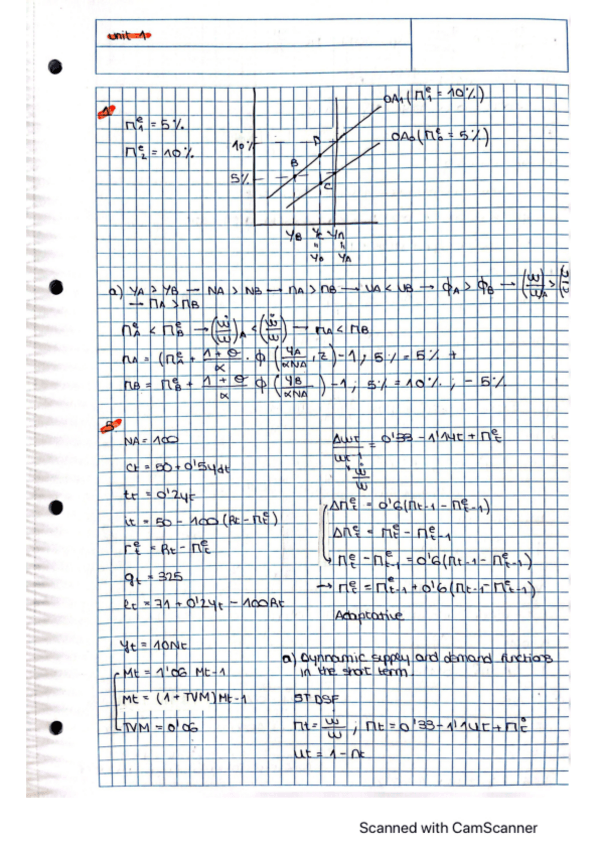 unit 1
1
π₁ᵉ = 5%
π₂ᵉ = 10%
OA₁ (π₁ᵉ = 10%)
OA₀ (π₀ᵉ = 5%)
10%
5%
B
D
C
YB Yc Yn
" "
Y0 YA
a) YA > YB → NA > NB → nA > nB → uA < uB → ϕA > ϕB → (ẇ/w)A >
→ πA > πB
πAᵉ < πBᵉ → (ẇ/w)A < (ẇ/w) → πA < πB
πA = (πAᵉ + 1+θ/α · ϕ (YA/αNA, z) - 1; 5% = 5% +
πB = πBᵉ + 1+θ/α ϕ (YB/αNA ) - 1; 5% = 10%; - 5%
NA = 100
ct = 50 + 0'5ydt
tt = 0'2yt
it = 50 - 100 (Rt - πtᵉ)
rtᵉ = Rt - πtᵉ
gt = 325
lt = 71 + 0'2yt - 100Rt
yt = 10Nt
Mt = 1'06 Mt-1
Mt = (1 + TVM) Mt-1
TVM = 0'06
Δwt/wt-1 = 0'33 - 1'1ut + πtᵉ
ẇ/w
Δπtᵉ = 0'6(πt-1 - πᵉt-1)
Δπtᵉ = πtᵉ - πᵉt-1
πtᵉ - πᵉt-1 = 0'6(πt-1 - πᵉt-1)
→ πtᵉ = πᵉt-1 + 0'6(πt-1 - πᵉt-1)
Adaptative
a) Dynnamic supply and demand functions
in the short term.
ST DSF
πt = ẇ/w ; πt = 0'33 - 1'1ut + πtᵉ
ut = 1 - nt
Scanned with CamScanner